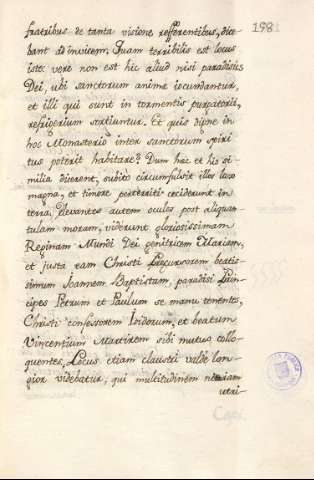 198
fratribus de tanta visione refferentibus, dice-
bant ad invicem. Quam terribilis est locus
iste: vere non est hic aliud nisi paradisus
Dei, ubi sanctorum anime iocundantur,
et illi qui sunt in tormentis purgatorii,
refrigerium sortiuntur. Et quis digne in
hoc Monasterio inter sanctorum spiri
tus poterit habitare? Dum hec et his si-
milia dicerent, subito circumfulsit illos lux
magna, et timore perterriti ceciderunt in
terra, elevantes autem oculos post aliquan-
tulam moram, viderunt gloriosissimam
Reginam Mundi Dei genitricem Mariam,
et justa eam Christi Precursorem beatis-
simum Joannem Baptistam, paradisi Prin-
cipes Petrum et Paulum se manu tenentes,
Christi confessorem Isidorum, et beatum
Vincentium Martirem sibi mutuo collo-
quentes, Locus etiam claustri valde lon-
gior videbatur, qui multitudinem
utri-